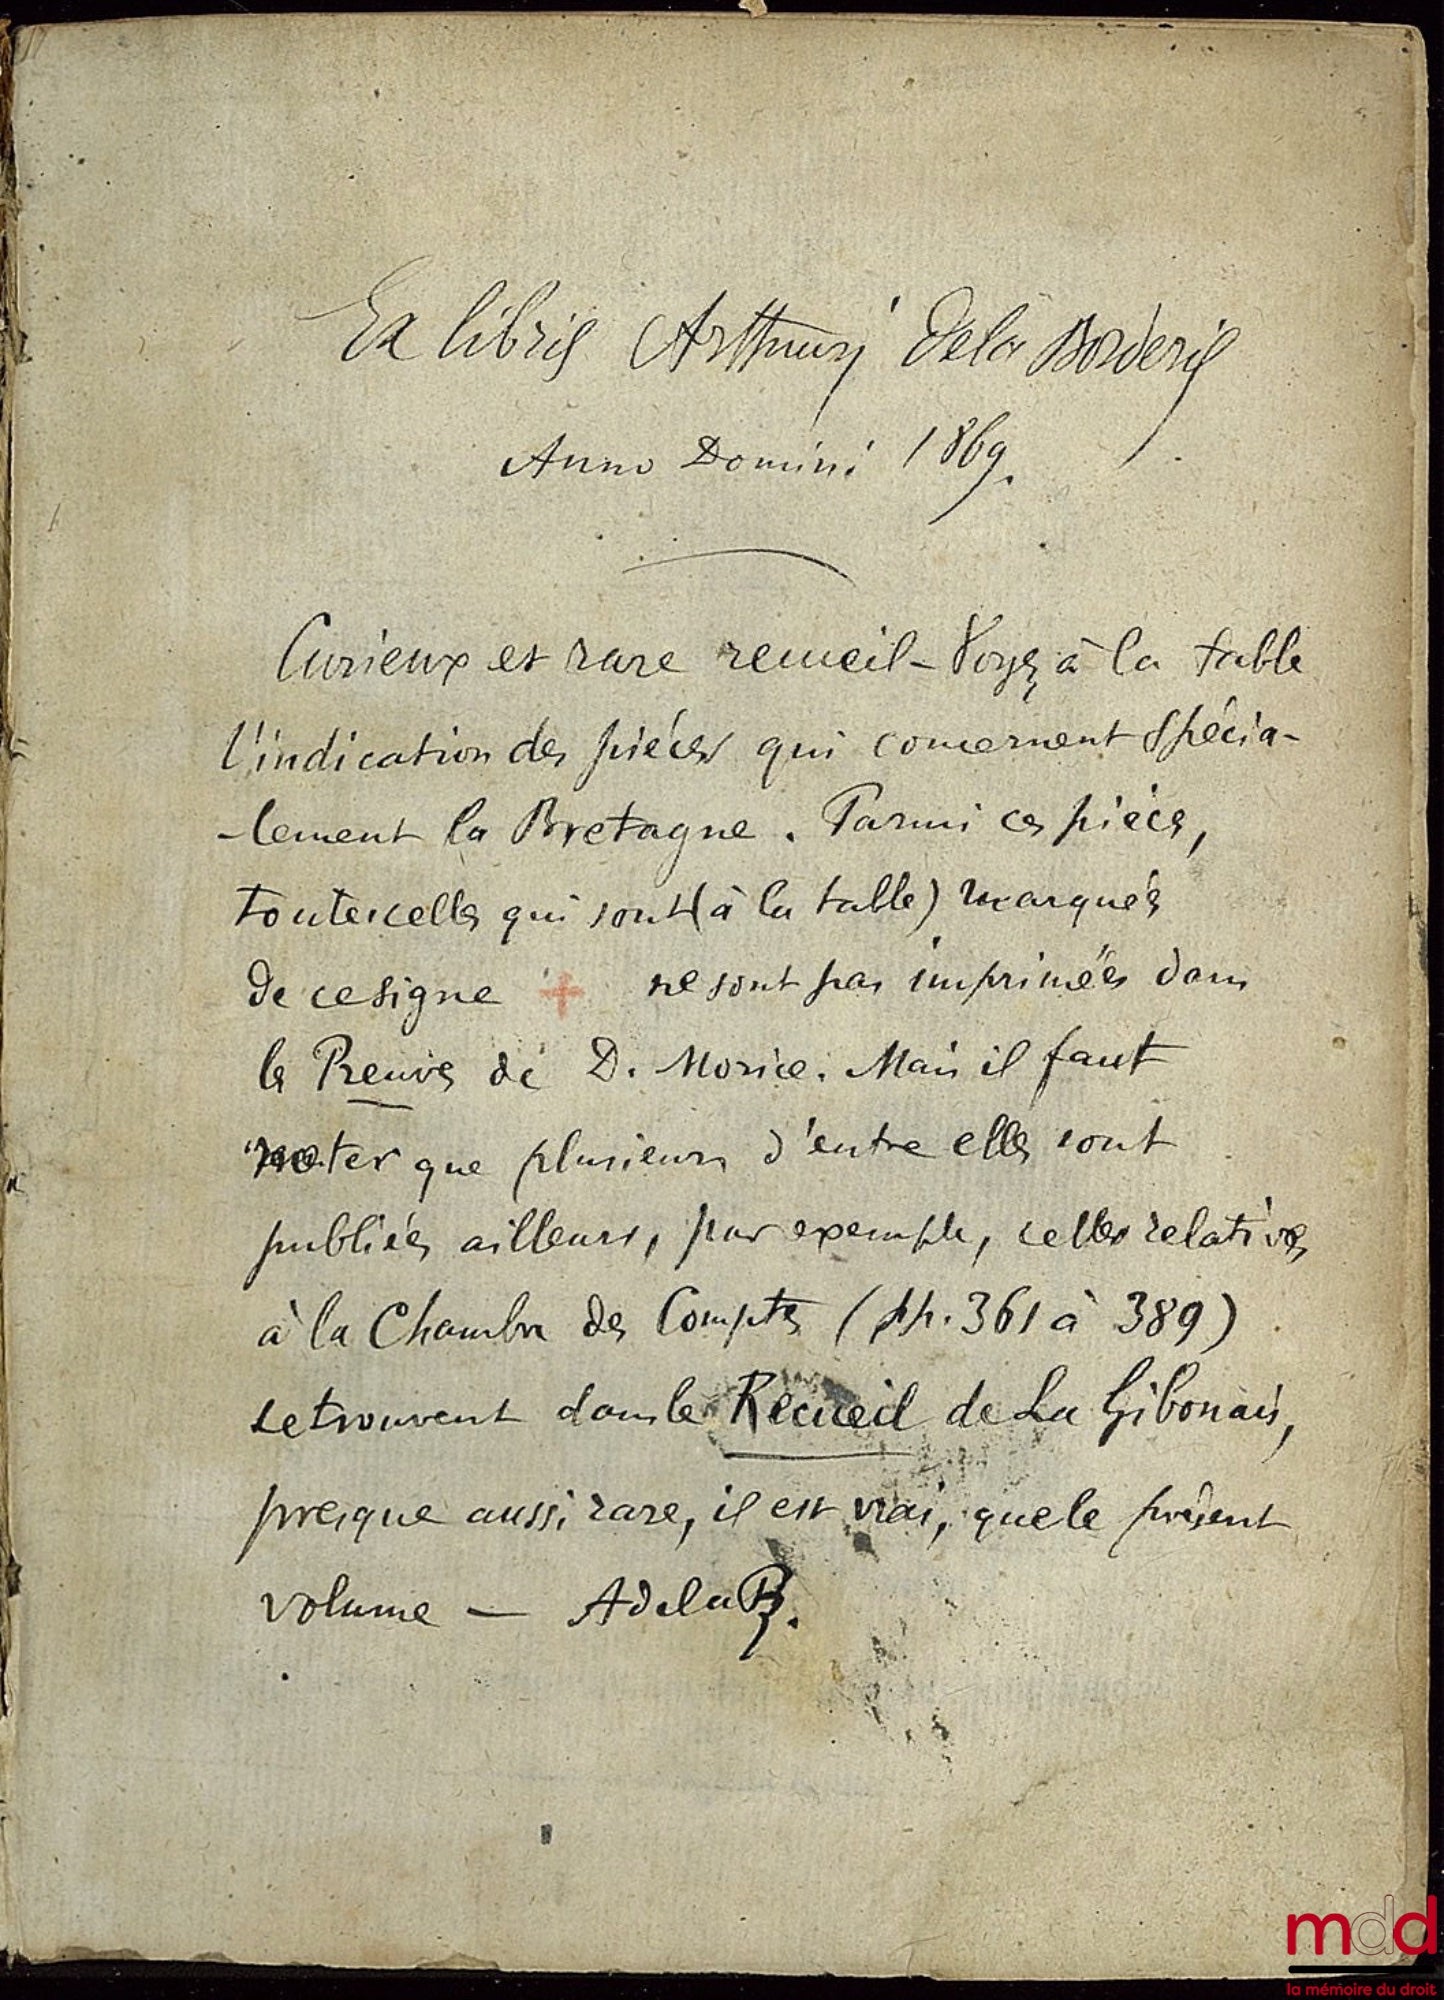 Ex libris Arthuri de la Borderie
Anno Domini 1869.
Curieux et rare recueil – Voyez à la table
l'indication des pièces qui concernent spécia-
-lement la Bretagne. Parmi ces pièces,
toutes celles qui sont (à la table) marquées
de ce signe + ne sont pas imprimées dans
les Preuves de D. Morice. Mais il faut
noter que plusieurs d'entre elles sont
publiées ailleurs, par exemple, celles relatives
à la Chambre des Comptes (pp. 361 à 389)
se trouvent dans le Recueil de La Gibonais,
presque aussi rare, il est vrai, que le présent
volume — A de la B.
mdd
la mémoire du droit